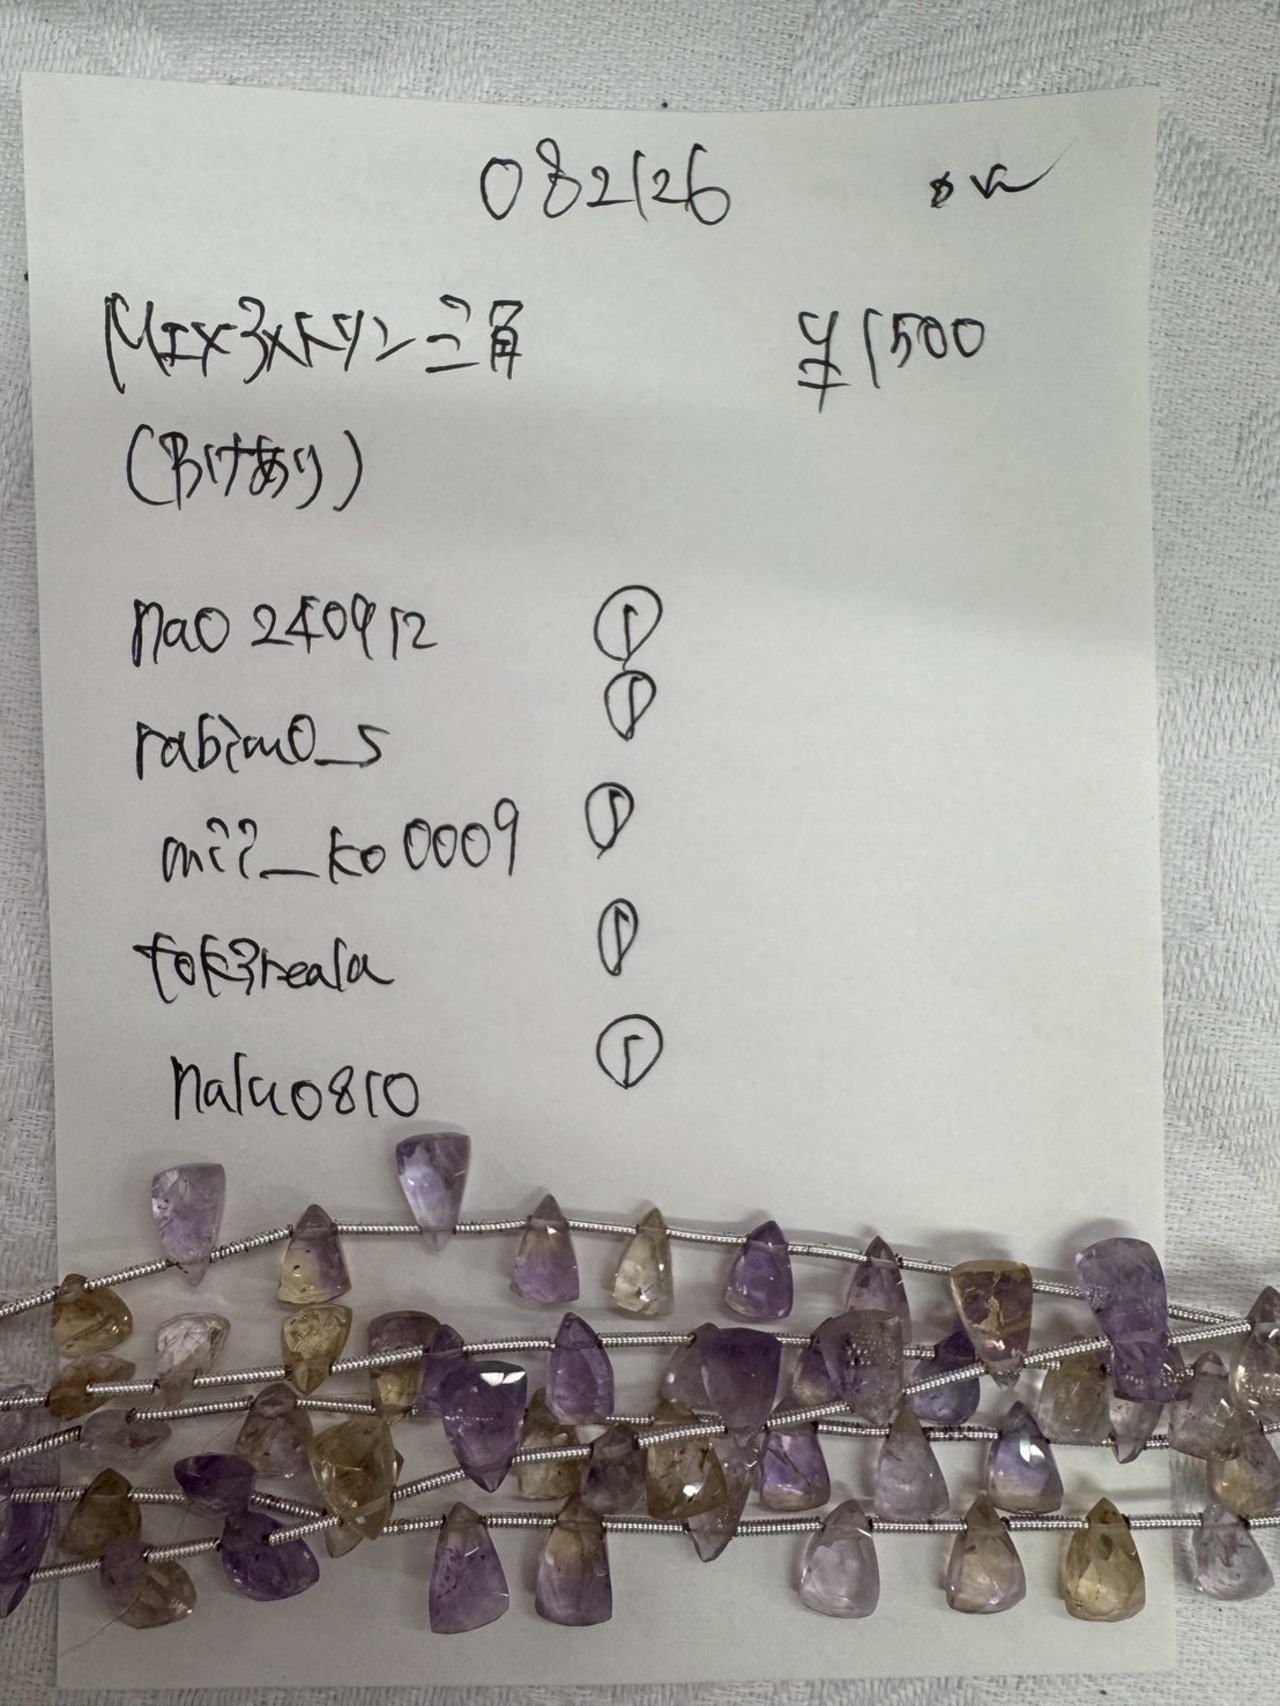 082126
MIX アメトリン 三角 ¥1500
(欠けあり)
nao240912 ①
rabimo_s ①
mii_ko0009 ①
tokireala ①
nalu0810 ①